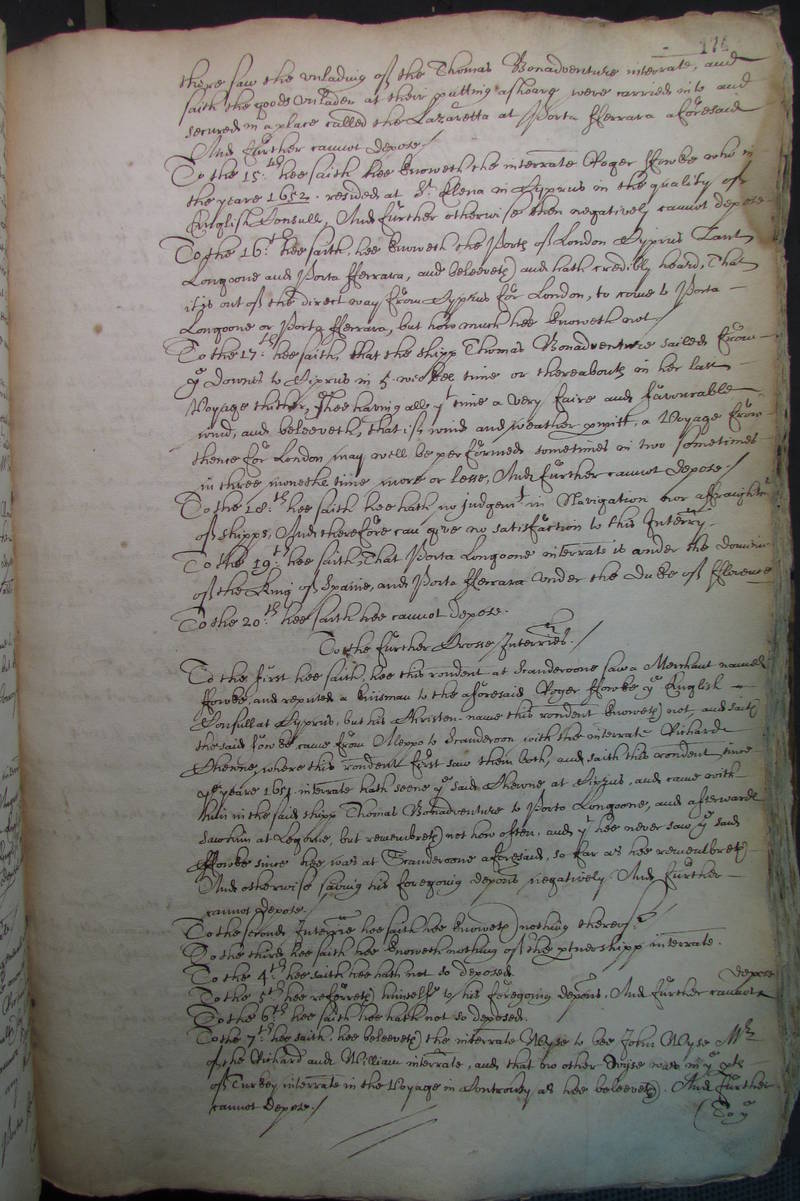 176
there saw the unlading of the Thomas Bonadventure interrate, and
saith the goods unladen at their putting ashoare were carried into and
secured in a place called the Lazaretta at Porta fferrara aforesaid
And further cannot depose./
To the 15.th hee saith hee knoweth the interrate Roger ffowke who in
the yeare 1652. resided at St. Elena in Cyprus in the quality of
English Consull, And further otherwise then negatively cannot depose
To the 16.th hee saith, hee knoweth the Ports of London Cyprus Zant
Longoone and Porta fferrara, and beleeveth and hath credibly heard, That
it is out of the direct way from Cyprus for London, to come to Porta
Longoone or Porta fferrara, but how much hee knoweth not./
To the 17.th hee saith, that the shipp Thomas Bonadventure sailed from
ye Downes to Ciprus in 5. weekes time or thereabouts in her last
Voyage thither, Shee having all yt time a very faire and favourable
wind, and beleeveth, that if wind and weather permitt, a Voyage from
thence for London may well be performed sometimes in two sometimes
in three moneths time more or lesse, And further cannot depose./
To the 18.th hee saith hee hath no judgent in Navigation nor affraightmt
of shipps, And therefore can give no satisfaction to this Interry.
To the 19.th hee saith, That Porta Longoone interrate is under the Dominion
of the King of Spaine, and Porta fferrara under the Duke of fflorence
To the 20.th hee saith hee cannot depose.
To the further Crosse Interries./
To the first hee saith, hee this rondent at Scanderoone saw a Merchant named
ffowke, and reputed a kinsman to the aforesaid Roger ffowke ye English
Consull at Cyprus, but his Christen name this rondent knoweth not, and saith
the said fowke came from Aleppo to Scanderoon with the interrate Richard
Chewne, where this rondent first saw them both, and saith this rondent since
ye yeare 1651. interrate hath seene ye said Chewne at Ciprus, and came with
him in the said shipp Thomas Bonadventure to Porto Longoone, and afterwards
saw him at Legorne, but remembreth not how often, and yt hee never saw ye said
ffowke since hee was at Scanderoone aforesaid, so far as hee remembreth
And otherwise saving his foregoing depons negatively And further
cannot depose./
To the second Interrie hee saith hee knoweth nothing thereof.
To the third hee saith hee knoweth nothing of the ptnershipp interrate.
To the 4th hee saith hee hath not so deposed.
To the 5th hee referreth himselfe to his foregoing depons, And further cannot depose
To the 6.th hee saith hee hath not so deposed.
To the 7.th hee saith, hee beleeveth the interrate Wyse to bee John Wyse Mr
of the Richard and William interrate, and that no other Wyse was in ye pts
of Turkey interrate in the Voyage in Controversy as hee beleeveth. And further
cannot depose./
(To ye